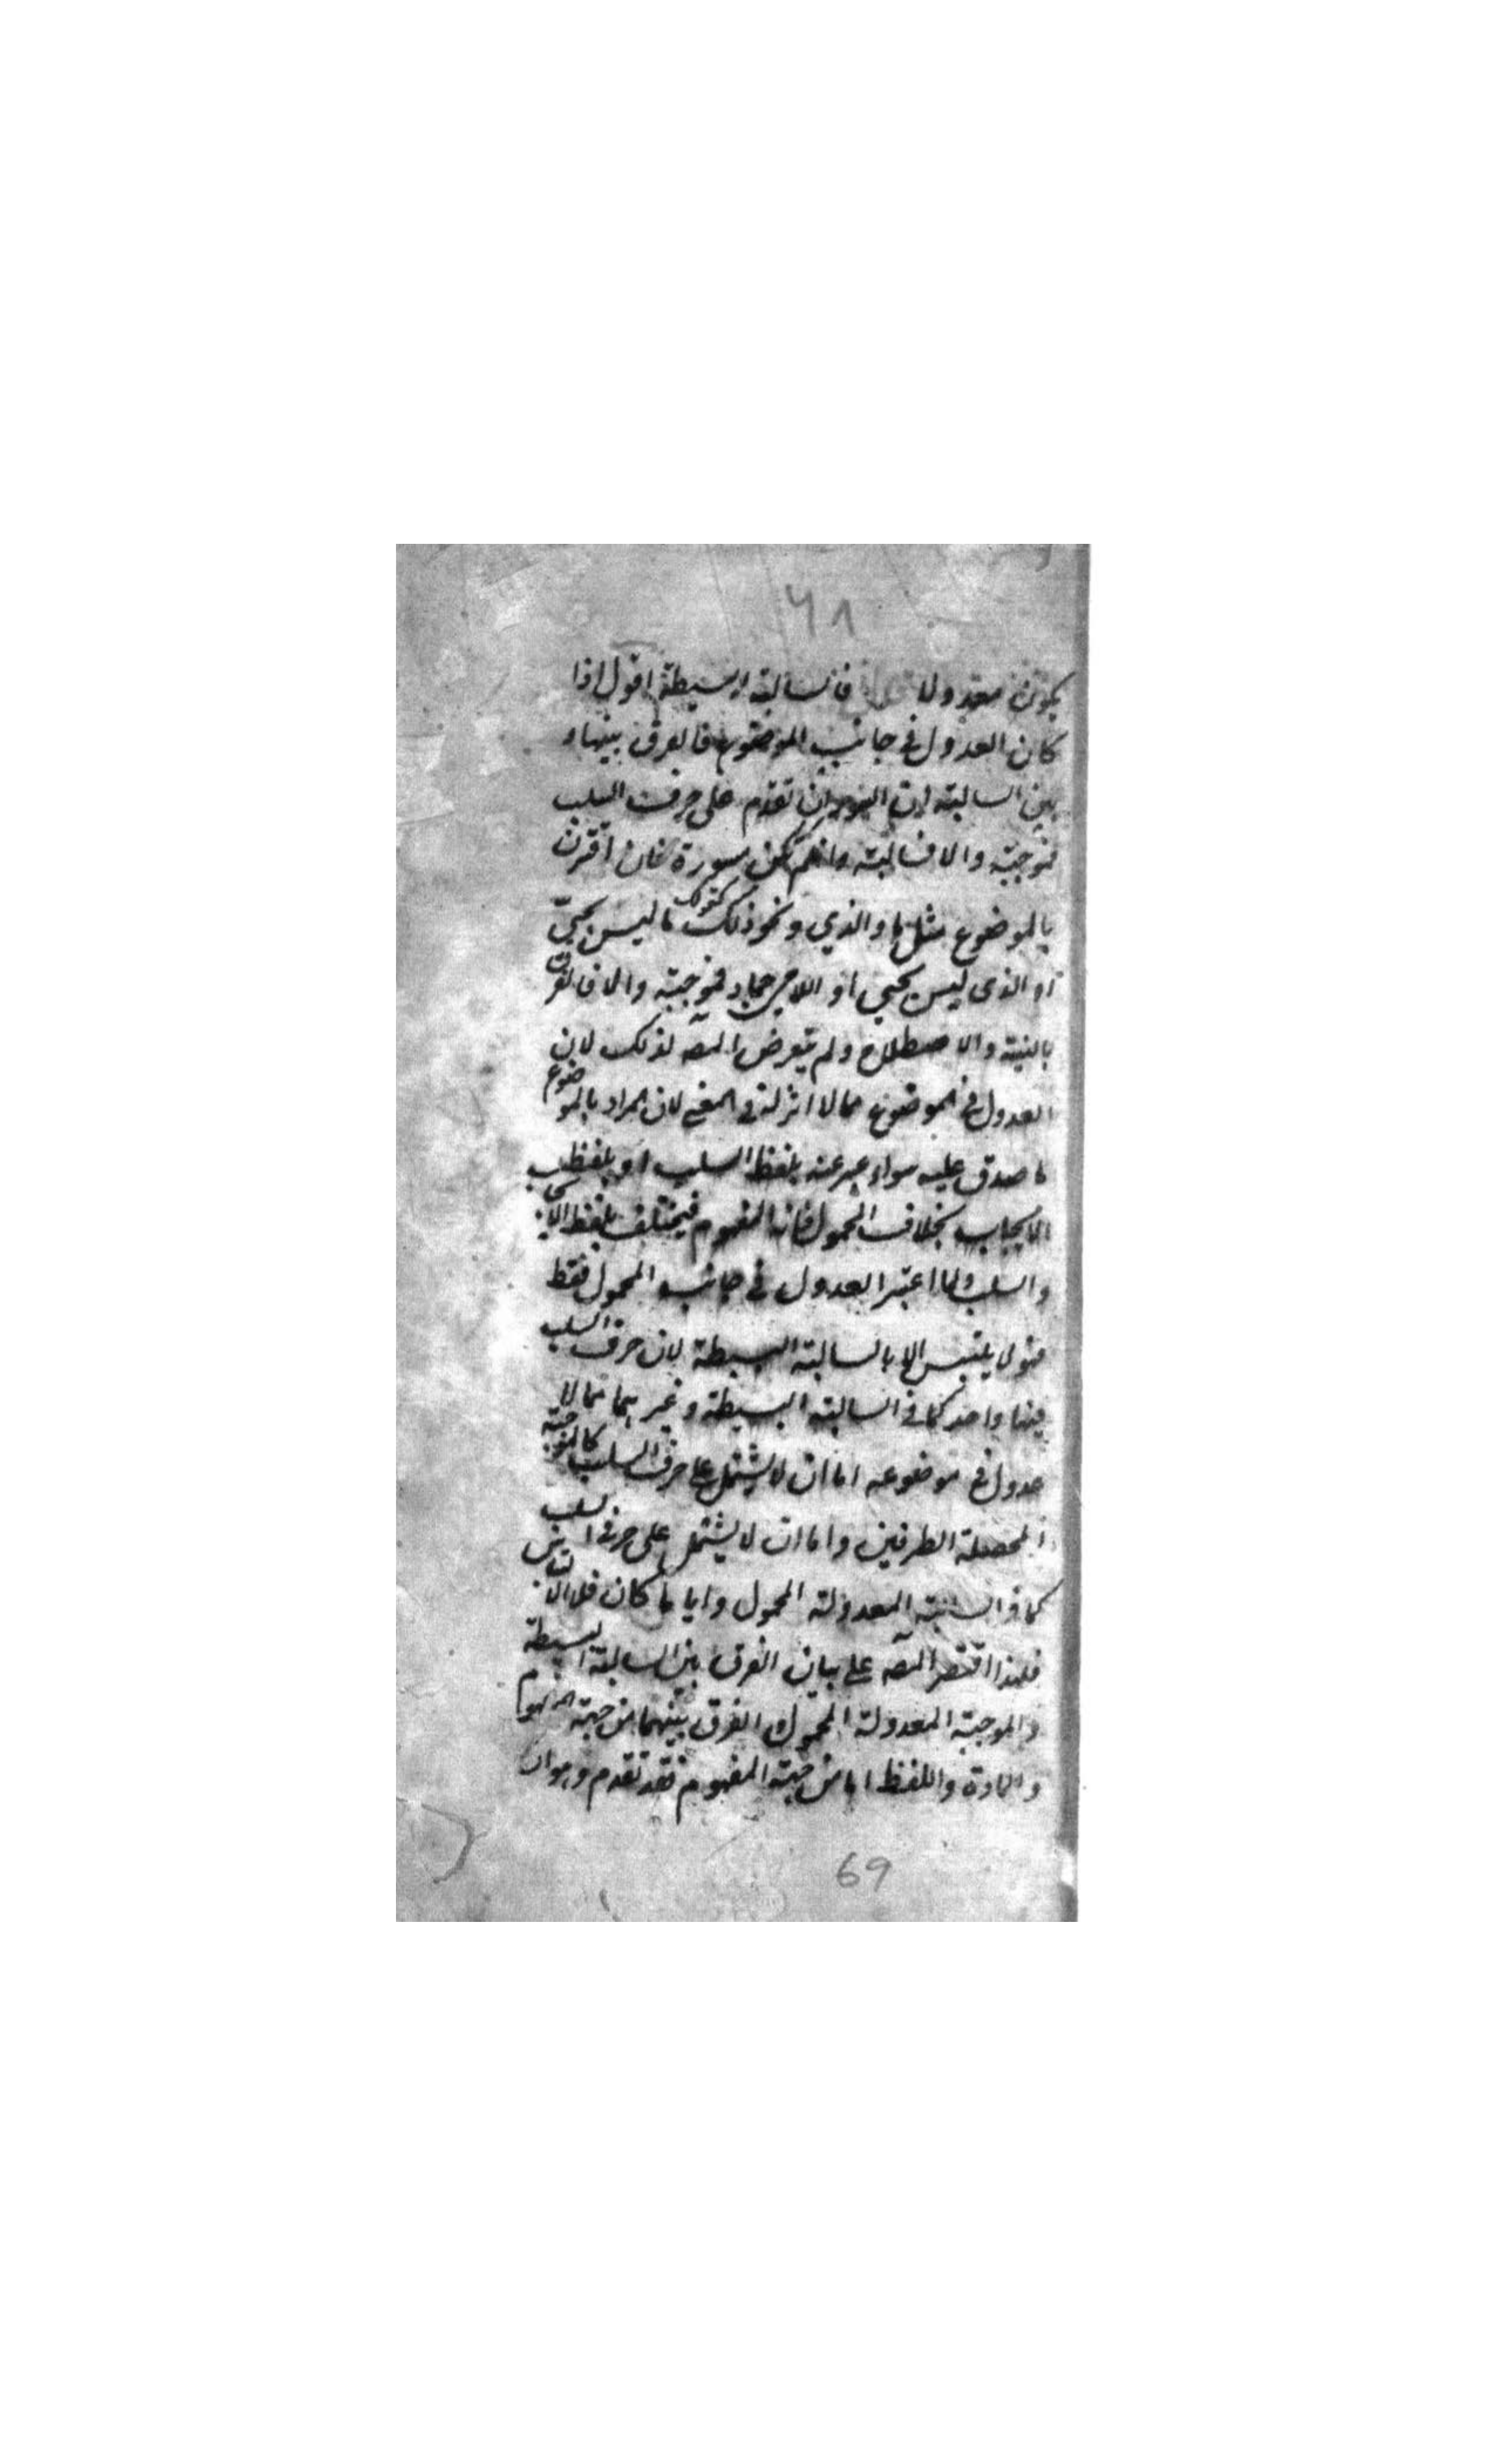 ٦٨
يكون معدولا فالسالبة البسيطة اقول اذا
كان العدول في جانب الموضوع فالفرق بينها و
بين السالبة ان السور ان تقدم على حرف السلب
فموجبة والا فسالبة وان لم تكن مسورة فان اقترن
بالموضوع مثل ما والذي ونحو ذلك كقولك ما ليس بحيّ
او الذي ليس بحي او اللاحي جماد فموجبة والا فالفرق
بالنية والاصطلاح ولم يتعرض المصّ لذلك لان
العدول في الموضوع مما لا اثر له في المعنى لان المراد بالموضوع
ما صدق عليه سواء عبر عنه بلفظ السلب او بلفظ
الايجاب بخلاف المحمول فانه المفهوم فيختلف بلفظ
والسلب ولما اعتبر العدول في جانب المحمول فقط
فهو لا يلتبس الا بالسالبة البسيطة لان حرف السلب
فيها واحد كما في السالبة البسيطة وغيرهما مما لا
عدول في موضوعه اما ان لا يشتمل على حرف السلب كالموجبة
المحصلة الطرفين واما ان لا يشتمل على حرفي السلب
كما في السالبة المعدولة المحمول وايا ما كان فلا التباس
فلهذا اقتصر المصّ على بيان الفرق بين السالبة البسيطة
والموجبة المعدولة المحمول والفرق بينهما من جهة المفهوم
والمادة واللفظ اما من جهة المفهوم فقد تقدم وهو ان
69